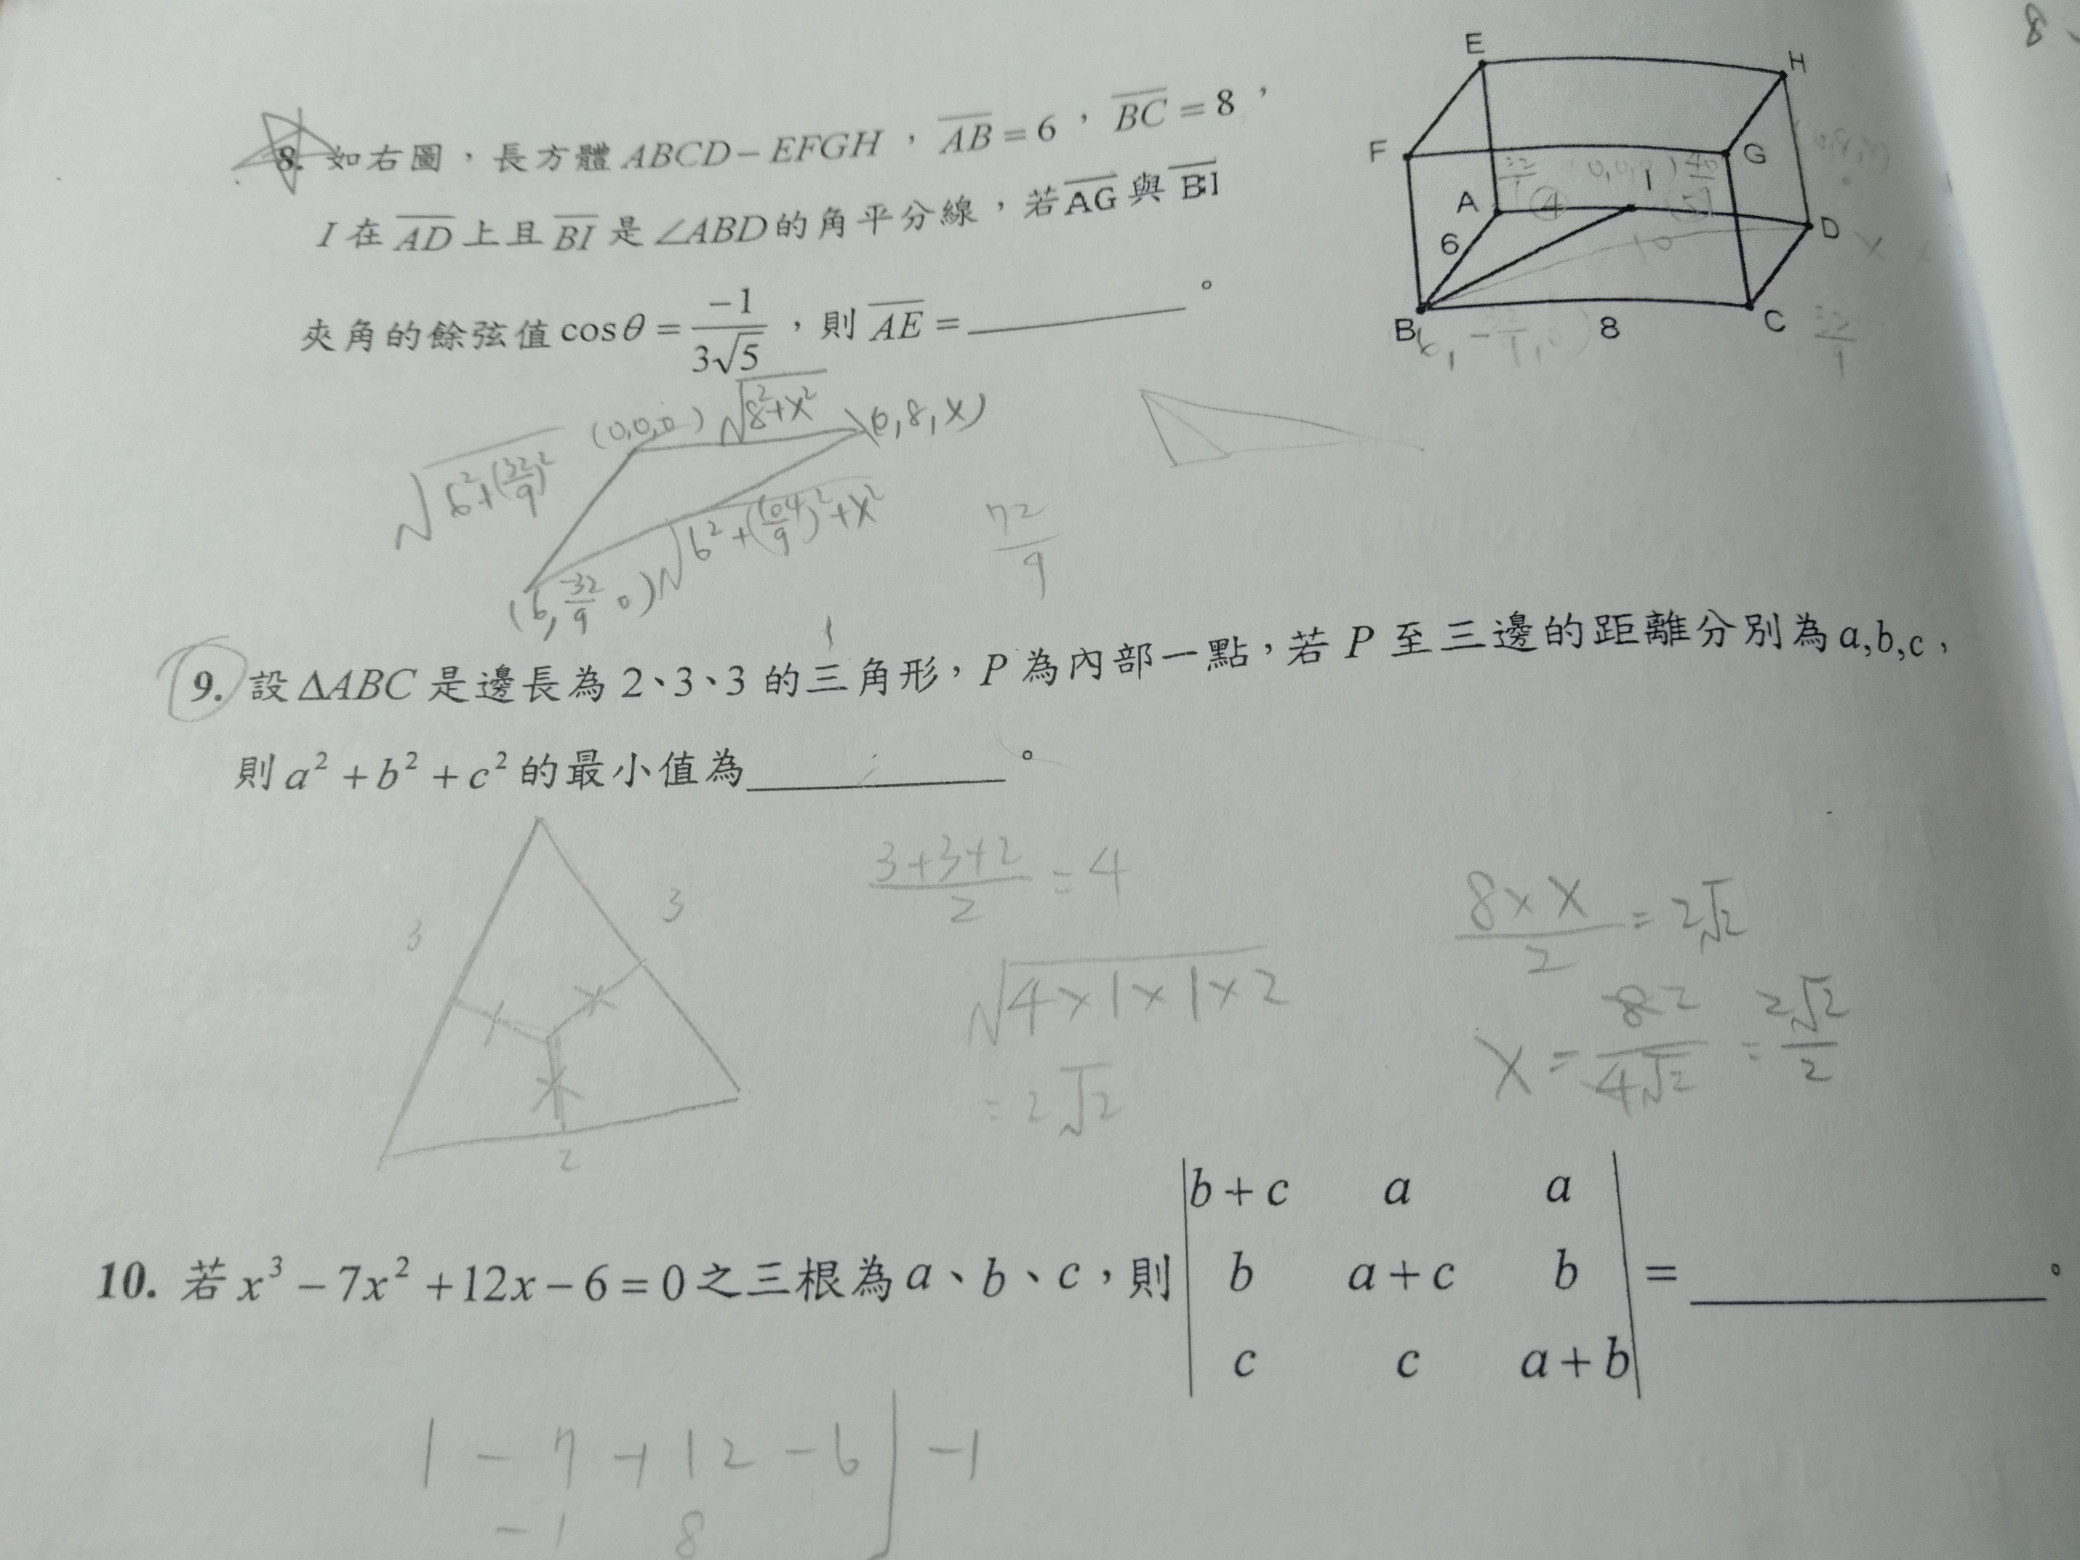 8. 如右圖，長方體 ABCD－EFGH，AB＝6，BC＝8，
I 在 AD 上且 BI 是∠ABD的角平分線，若AG與BI
夾角的餘弦值 cosθ = -1/(3√5)，則 AE = ________。
E
H
F
G
A
I
④
D
6
10
B
8
C
√(8²+x²)
(0,0,0)
(0,8,x)
√(6²+(32/9)²)
√(6²+(104/9)²+x²)
72/9
9. 設ΔABC 是邊長為 2、3、3 的三角形，P 為內部一點，若 P 至三邊的距離分別為a,b,c，
則 a²+b²+c² 的最小值為________。
3
3
2
(3+3+2)/2 = 4
√(4×1×1×2)
=2√2
(8×x)/2 = 2√2
10. 若 x³－7x²＋12x－6＝0之三根為 a、b、c，則
b+c a a
b a+c b
c c a+b
= ________。
1 -7 +12 -6 | -1
-1 8